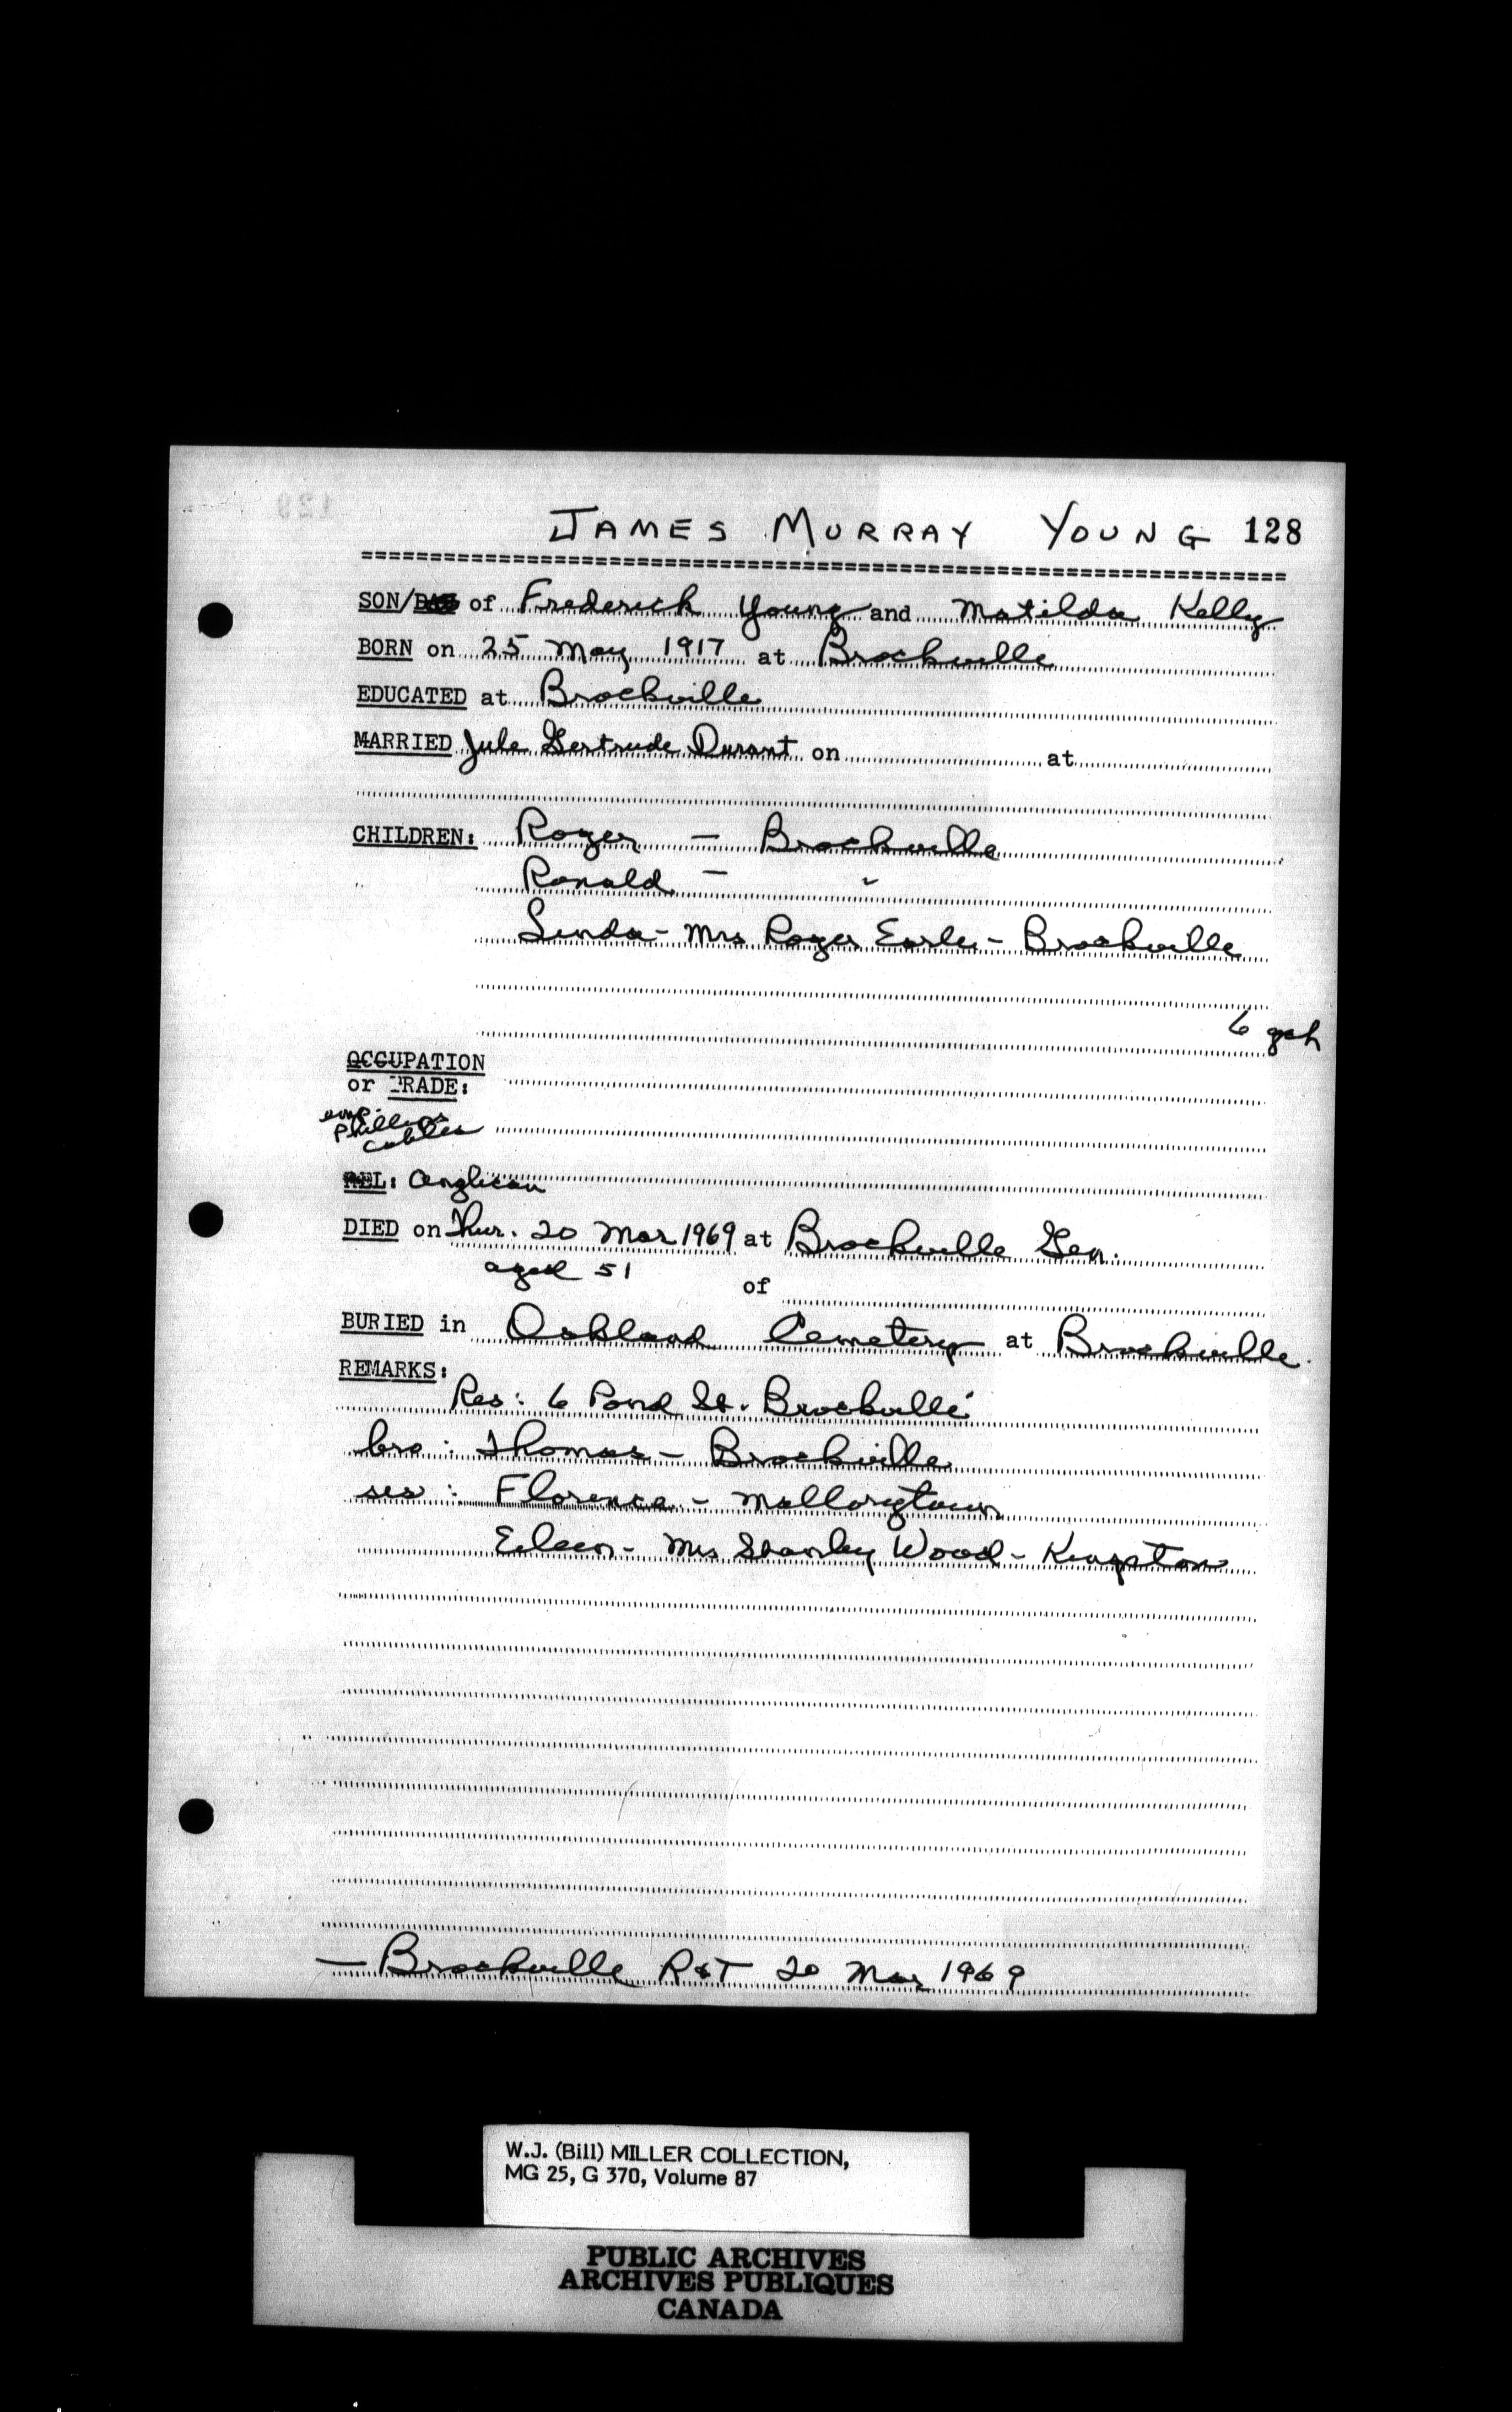 JAMES MURRAY YOUNG 128
SON/ of Frederick Young and Matilda Kelly
BORN on 25 May 1917 at Brockville
EDUCATED at Brockville
MARRIED Jule Gertrude Durant on at
CHILDREN: Roger - Brockville
Ronald - "
Linda - Mrs Roger Earle - Brockville
6 gch
OCCUPATION
or TRADE:
emp.
Phillips
cables
REL: Anglican
DIED on Thur. 20 Mar 1969 at Brockville Gen.
aged 51 of
BURIED in Oakland Cemetery at Brockville.
REMARKS:
Res: 6 Pond St. Brockville
bro: Thomas - Brockville
sis: Florence - Mallorytown
Eileen - Mrs Stanley Wood - Kingston
- Brockville R&T 20 Mar 1969
W.J. (Bill) MILLER COLLECTION,
MG 25, G 370, Volume 87
PUBLIC ARCHIVES
ARCHIVES PUBLIQUES
CANADA